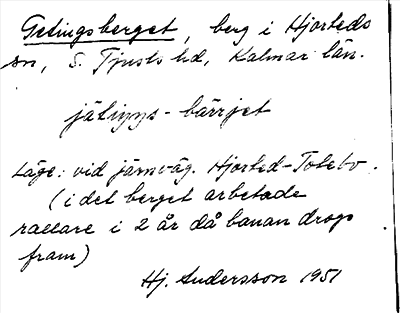 Getingsberget, berg i Hjorteds
sn, S. Tjusts hd, Kalmar län.
jätiŋŋs-bärrjet
Läge: vid järnväg. Hjorted-Totebo.
(i det berget arbetade
rallare i 2 år då banan drogs
fram)
Hj. Andersson 1951